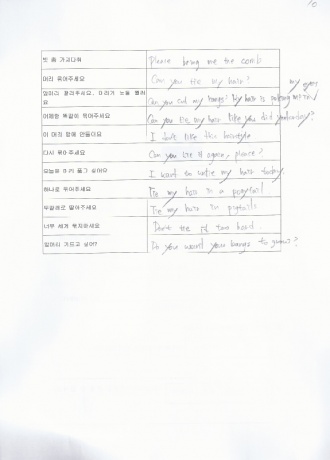 빗 좀 가져다줘 Please bring me the comb
머리 묶어주세요 Can you tie my hair?
앞머리 잘라주세요, 머리가 눈을 찔러 Can you cut my bangs? My hair is poking my eyes
요
어제랑 똑같이 묶어주세요 Can you tie my hair like you did yesterday?
이 머리 맘에 안들어요 I don't like this hairstyle
다시 묶어주세요 Can you tie it again, please?
오늘은 머리 풀고 싶어요 I want to untie my hair today.
하나로 묶어주세요 Tie my hair in a ponytail
두갈래로 땋아주세요 Tie my hair in pigtails
너무 세게 묶지마세요 Don't tie it too hard.
앞머리 기르고 싶어? Do you want your bangs to grow?